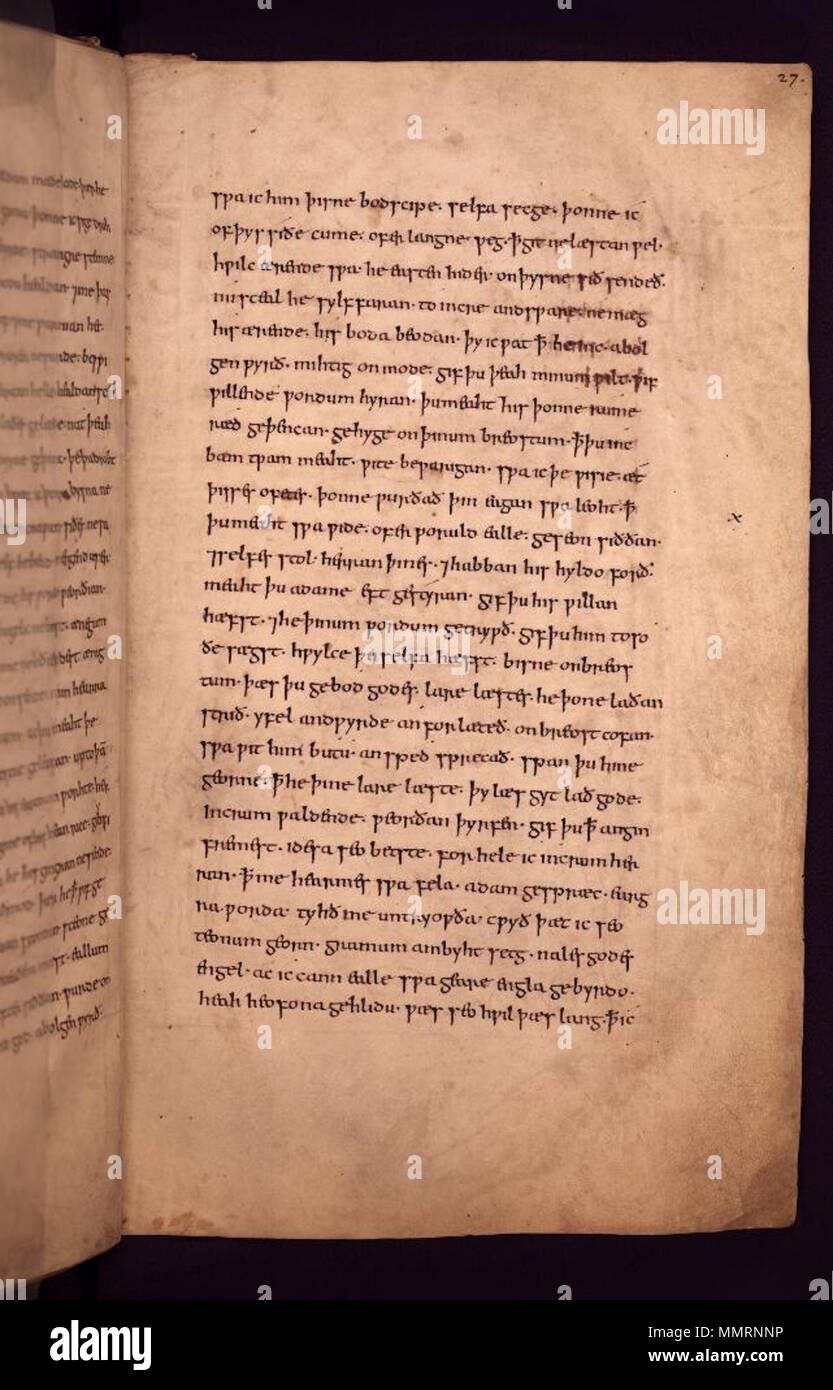 27.
sƿa ic him þisne bodscipe. selfa secge. þonne ic
of þys siðe cume. ofer langne ƿeg. ꝥ git ne læstan ƿel.
hƿilc ærende sƿa. he easten hider. on þysne sið sendeð.
nu sceal he sylf faran. to incre andsƿare. ne mæg
his ærende. his boda beodan. þy ic ƿat ꝥ he inc. abol
gen ƿyrð. mihtig on mode. gif þu þeah minum ƿilt. ƿif
ƿillende ƿordum hyran. þu meaht his þonne rume
ræd geþencan. gehyge on þinum breostum. ꝥ þu inc
bam tƿam meaht. ƿite beƿarigan. sƿa ic þe ƿisie. æt
þisses ofetes. þonne ƿurðað þin eagan sƿa leoht. ꝥ
þu meaht sƿa ƿide. ofer ƿoruld ealle. geseon siððan.
⁊ selfes stol. herran þines. ⁊ habban his hyldo forð.
meaht þu adame eft gestyran. gif þu his ƿillan
hæfst. ⁊ he þinum ƿordum getryƿð. gif þu him to so
ðe sægst. hƿylce þu selfa hæfst. bisne on breos
tum. þæs þu gebod godes. lare læstes. he þone laðan
strið. yfel andƿyrde an forlæteð. on breost cofan.
sƿa ƿit him butu. an sped sprecað. span þu hine
georne. ꝥ he þine lare læste. þy læs gyt lað gode.
incrum ƿaldende. ƿeorðan þyrfen. gif þu ꝥ angin
fremest. idesa seo betste. forhele ic incrum her
ran. ꝥ me hearmes sƿa fela. adam gespræc. earg
ra ƿorda. tyhð me untryoƿða. cƿyð þæt ic seo
teonum georn. gramum ambyht secg. nales godes
engel. ac ic cann ealle sƿa geare engla gebyrdo.
heah heofona gehlidu. ƿæs seo hƿil þæs lang. ꝥ ic
alamy
Image ID: MMRNNP
www.alamy.com